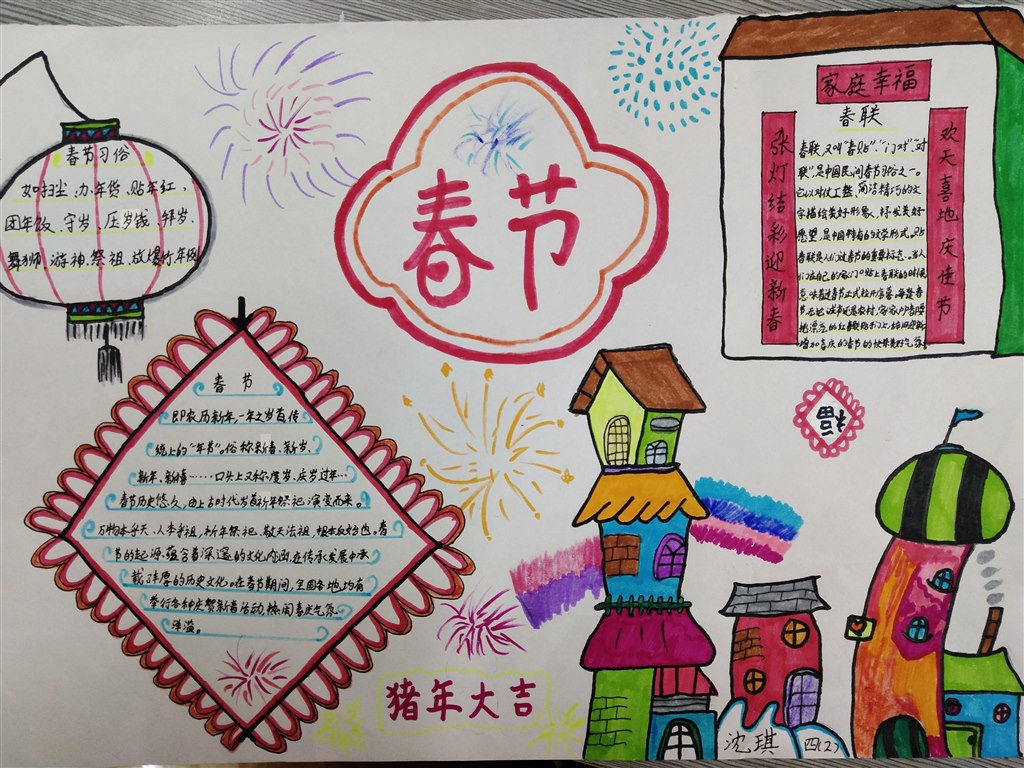 春节习俗
如扫尘、办年货、贴年红、
团年饭、守岁、压岁钱、拜岁、
舞狮、游神、祭祖、放爆竹、年例
春节
家庭幸福
春联
张灯结彩迎新春
春联,又叫"春贴"、"门对"、"对
联",是中国民间春节习俗之一。
它以对仗工整、简洁精巧的文
字描绘美好形象,抒发美好
愿望,是中国特有的文学形式。贴
春联是人们过春节的重要标志。当人
们在自己的家门口贴上春联的时候
意味着过春节正式拉开序幕。每逢春
节,无论城市还是农村,家家户户都要
挑漂亮的红春联贴于门上,
增加喜庆的春节的快乐美好气氛
欢天喜地庆佳节
春节
即农历新年,一年之岁首,传
统上的"年节"。俗称新春、新岁、
新年、新禧……口头上又称度岁、庆岁、过年…
春节历史悠久,由上古时代岁首祈年祭祀演变而来。
万物本乎天、人本乎祖,祈年祭祀、敬天法祖,报本反始也。春
节的起源蕴含着深邃的文化内涵,在传承发展中承
载了丰厚的历史文化。在春节期间,全国各地均有
举行各种庆贺新春活动,热闹喜庆气氛
洋溢。
福
猪年大吉
沈琪 四(2)